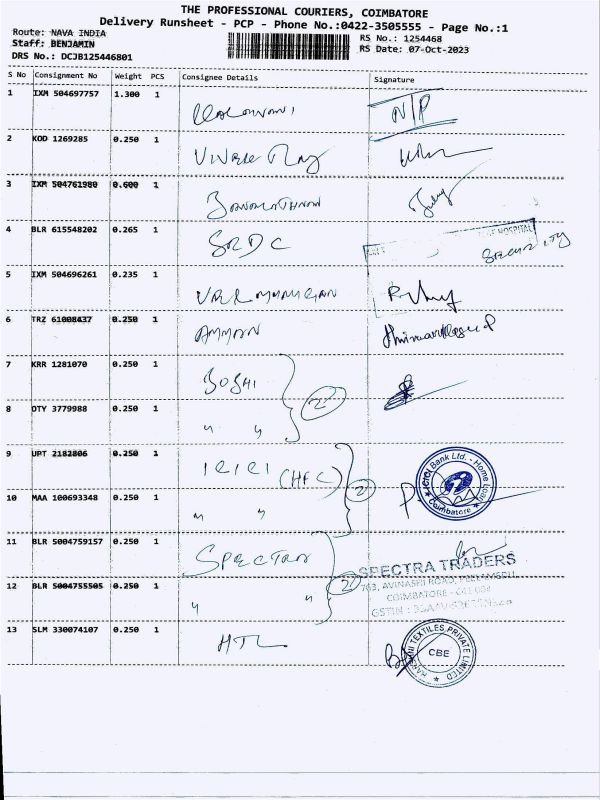 THE PROFESSIONAL COURIERS, COIMBATORE
Delivery Runsheet - PCP - Phone No.:0422-3505555 - Page No.:1
Route: NAVA INDIA
RS No.: 1254468
Staff: BENJAMIN
RS Date: 07-Oct-2023
DRS No.: DCJB125446801
S No Consignment No Weight PCS Consignee Details Signature
1 IXM 504697757 1.300 1
2 KOD 1269285 0.250 1
3 IXM 504761980 0.600 1
4 BLR 615548202 0.265 1 SRDC HOSPITAL SECURITY
5 IXM 504696261 0.235 1
6 TRZ 61008437 0.250 1 AMMAN
7 KRR 1281070 0.250 1 2
8 OTY 3779988 0.250 1 " "
9 UPT 2182806 0.250 1 ICICI (HFC) 2 ICICI Bank Ltd. - Home Loan Coimbatore
10 MAA 100693348 0.250 1 " "
11 BLR 5004759157 0.250 1 SPECTRA 2
SPECTRA TRADERS
763, AVINASHI ROAD, PEELAMEDU,
12 BLR 5004755505 0.250 1 " "
COIMBATORE - 641 004
GSTIN :
13 SLM 330074107 0.250 1 HTL TEXTILES PRIVATE LIMITED CBE